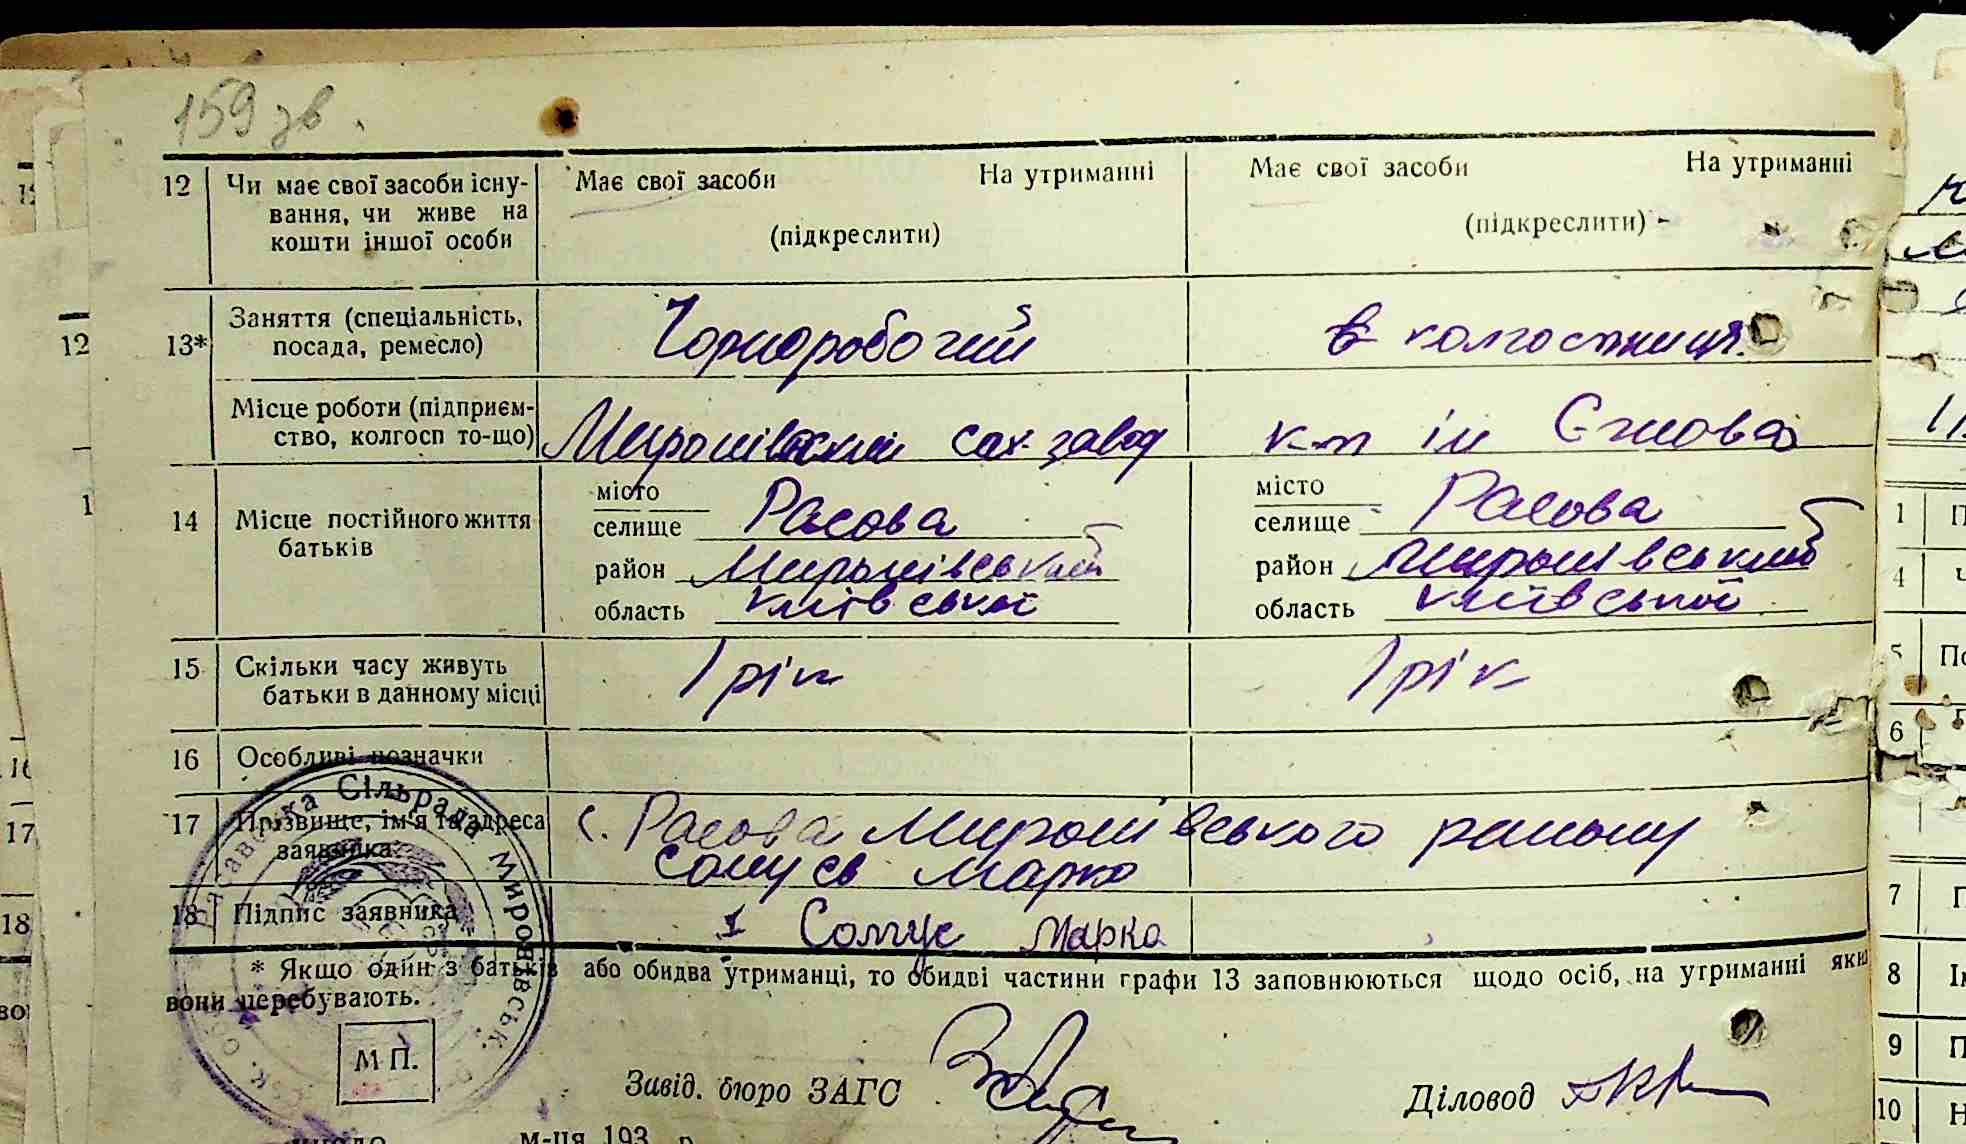 159 зв.
12 Чи має свої засоби існу- Має свої засоби На утриманні Має свої засоби На утриманні
вання, чи живе на
кошти іншої особи (підкреслити) (підкреслити)
13* Заняття (спеціальність, Чорноробочий в колгостниця.
посада, ремесло)
Місце роботи (підприєм- Миронівський сах завод к-п ім
ство, колгосп то-що)
14 Місце постійного життя місто місто
батьків селище Расова селище Расова
район Миронівський район Миронівський
область київської область київської
15 Скільки часу живуть 1 рік 1 рік
батьки в данному місці
16 Особливі позначки
17 Прізвище, ім'я та адреса с. Расова Миронівського району
заявника Марко
18 Підпис заявника Марко
* Якщо один з батьків або обидва утриманці, то обидві частини графи 13 заповнюються щодо осіб, на утриманні яких
вони перебувають.
М П.
Завід. бюро ЗАГС Діловод
м-ця 193 р
Сільрада Миронівськ.
12
16
17
18
1 П
4 Ч
5 По
6
7 П
8 Ім
9 П
10 Н